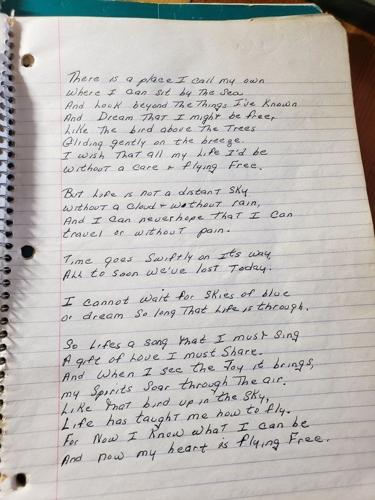 There is a place I call my own
Where I can sit by The Sea
And Look beyond The Things I've Known
And Dream That I might be free,
Like The bird above The Trees
Gliding gently on the breeze.
I wish That all my Life I'd be
Without a care & flying Free.
But Life is not a distant Sky
Without a cloud & without rain,
And I can never hope That I can
travel or without pain.
Time goes Swiftly on Its way
All to Soon we've lost Today.
I cannot wait for Skies of blue
or dream So long That Life is through.
So Lifes a song that I must Sing
A gift of Love I must Share.
And When I see the Joy it brings,
my Spirits Soar through The air.
Like That bird up in the Sky,
Life has taught me how to fly.
For Now I Know what I can be
And now my heart is flying Free.